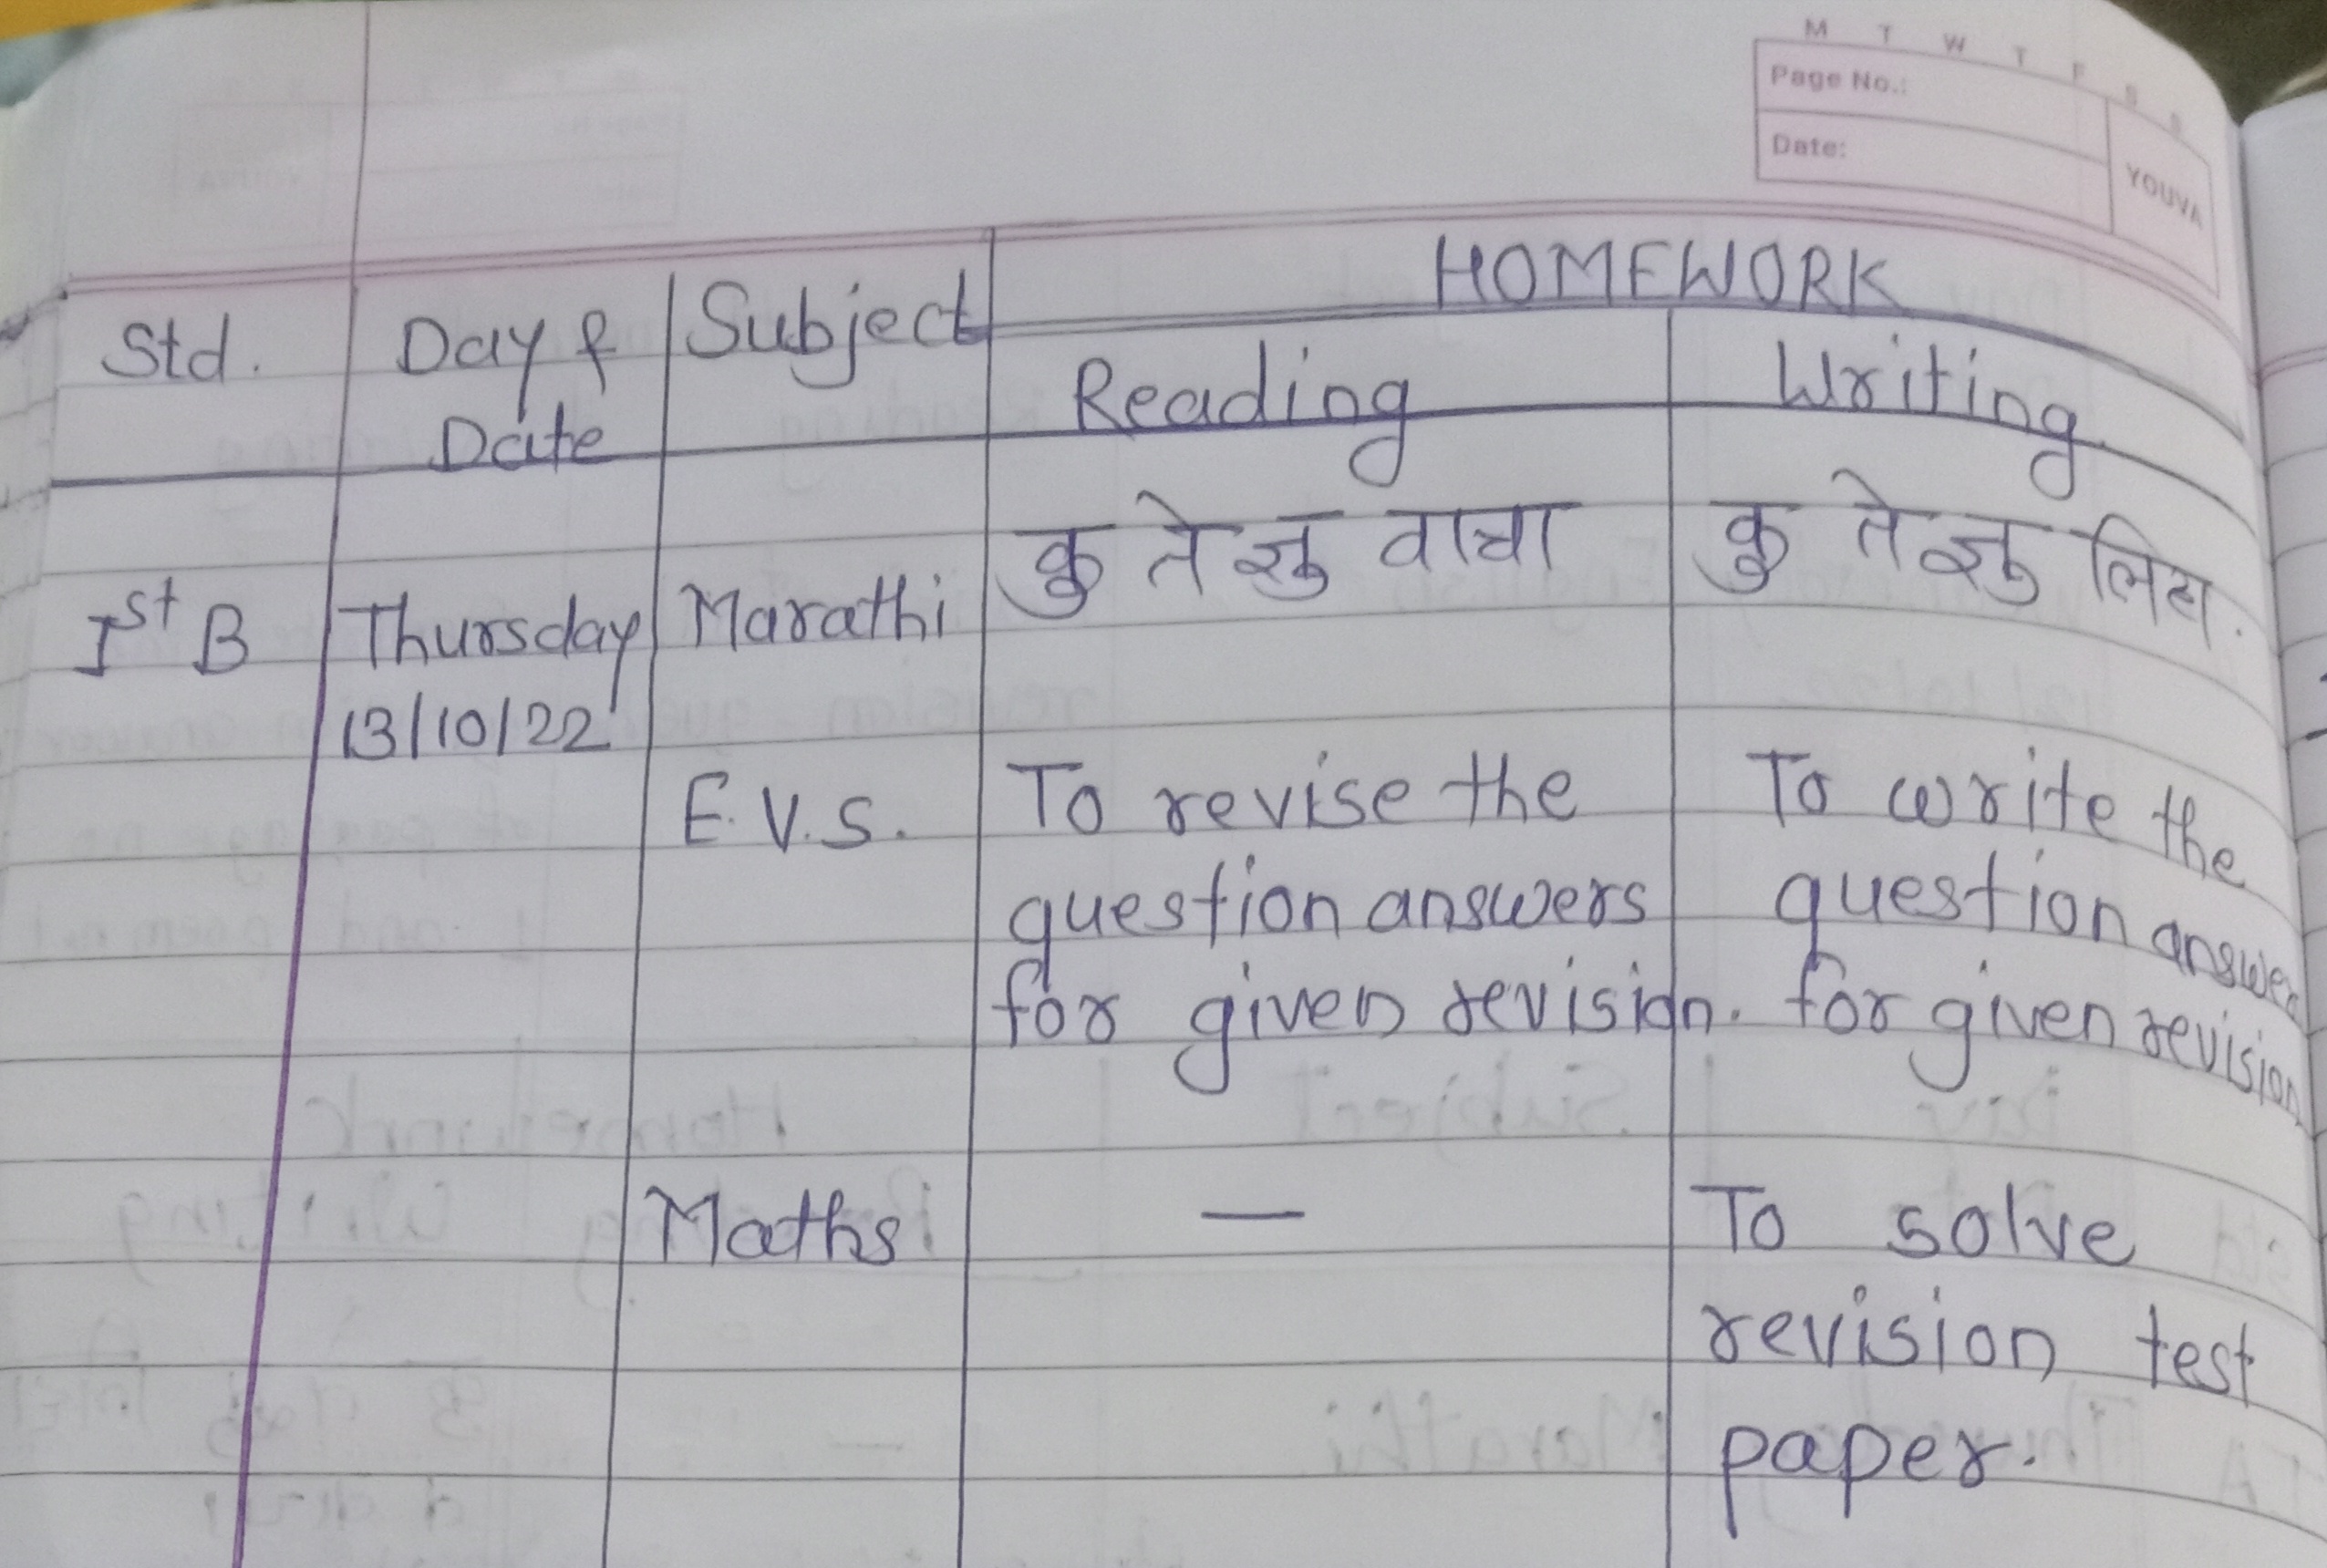 M T W T F S S
Page No.:
Date:
YOUVA
HOMEWORK
Std. Day & Subject
Date
Reading Writing
कु ते ज्ञु वाचा कु ते ज्ञु लिहा.
Ist B Thursday Marathi
13/10/22
E.V.S. To revise the To write the
question answers question answer
for given revision. for given revision
Maths — To solve
revision test
paper.